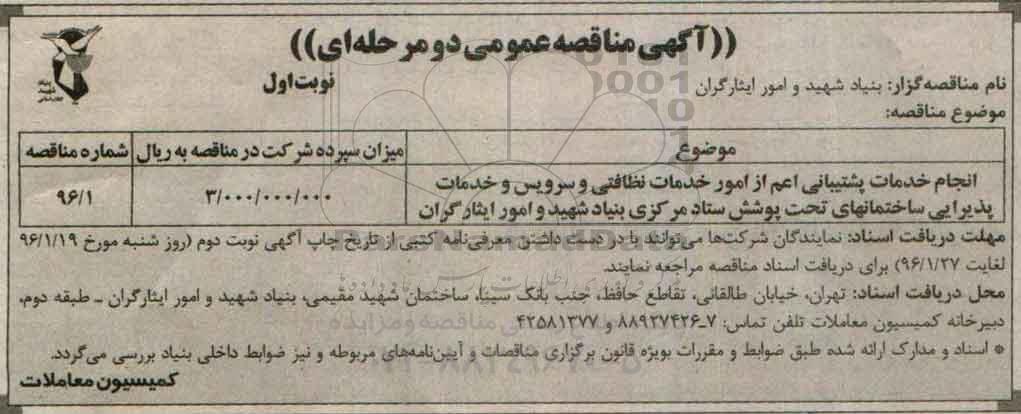 ((آگهی مناقصه عمومی دو مرحله‌ای))
نوبت اول
نام مناقصه‌گزار: بنیاد شهید و امور ایثارگران
موضوع مناقصه:
موضوع | میزان سپرده شرکت در مناقصه به ریال | شماره مناقصه
انجام خدمات پشتیبانی اعم از امور خدمات نظافتی و سرویس و خدمات
پذیرایی ساختمانهای تحت پوشش ستاد مرکزی بنیاد شهید و امور ایثارگران | ۳/۰۰۰/۰۰۰/۰۰۰ | ۹۶/۱
مهلت دریافت اسناد: نمایندگان شرکت‌ها می‌توانند با در دست داشتن معرفی‌نامه کتبی از تاریخ چاپ آگهی نوبت دوم (روز شنبه مورخ ۹۶/۱/۱۹
لغایت ۹۶/۱/۲۷) برای دریافت اسناد مناقصه مراجعه نمایند.
محل دریافت اسناد: تهران، خیابان طالقانی، تقاطع حافظ، جنب بانک سینا، ساختمان شهید مقیمی، بنیاد شهید و امور ایثارگران ـ طبقه دوم،
دبیرخانه کمیسیون معاملات تلفن تماس: ۷ـ۸۸۹۲۷۴۲۶ و ۴۲۵۸۱۳۷۷
* اسناد و مدارک ارائه شده طبق ضوابط و مقررات بویژه قانون برگزاری مناقصات و آیین‌نامه‌های مربوطه و نیز ضوابط داخلی بنیاد بررسی می‌گردد.
کمیسیون معاملات